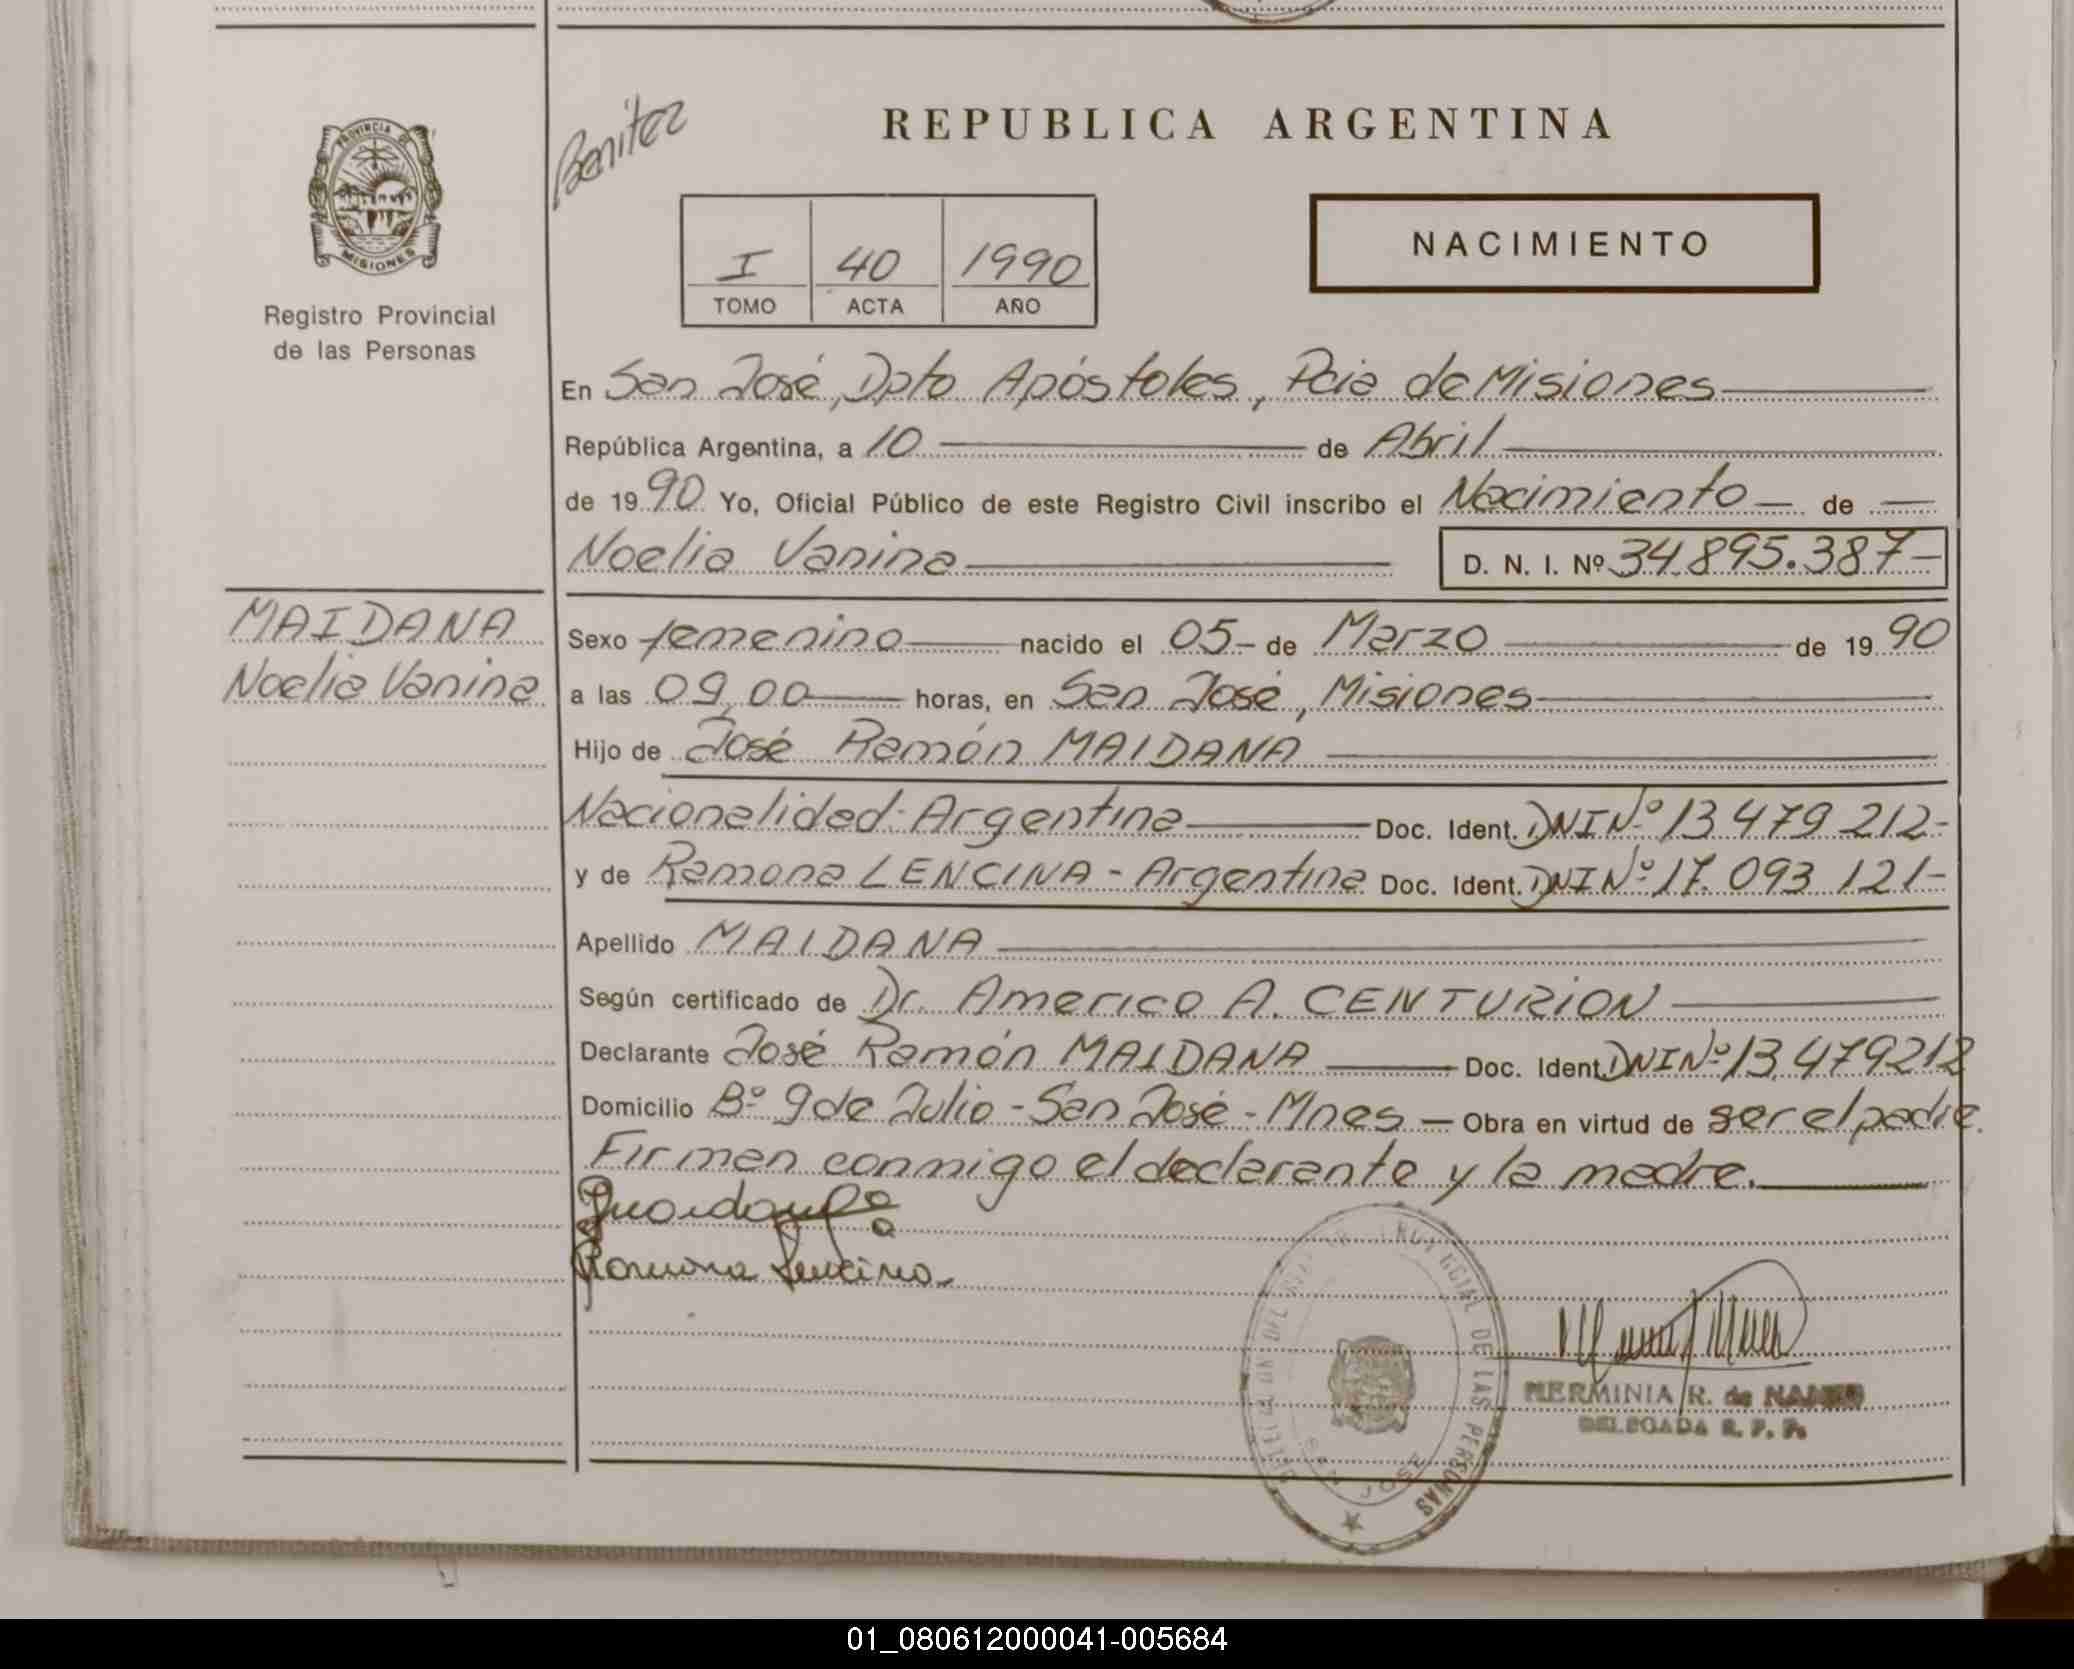 REPUBLICA ARGENTINA
Benitez
PROVINCIA DE
MISIONES
Registro Provincial
de las Personas
I 40 1990
TOMO ACTA AÑO
NACIMIENTO
En San José, Dpto Apóstoles, Pcia de Misiones
República Argentina, a 10 de Abril
de 1990 Yo, Oficial Público de este Registro Civil inscribo el Nacimiento de
Noelia Vanina D. N. I. Nº 34.895.387-
MAIDANA
Noelia Vanina
Sexo femenino nacido el 05- de Marzo de 1990
a las 09,00 horas, en San José, Misiones
Hijo de José Ramón MAIDANA
Nacionalidad-Argentina Doc. Ident. DNI Nº 13.479.212-
y de Ramona LENCINA - Argentina Doc. Ident. DNI Nº 17.093.121-
Apellido MAIDANA
Según certificado de Dr. Americo A. CENTURION
Declarante José Ramón MAIDANA Doc. Ident. DNI Nº 13.479212
Domicilio Bº 9 de Julio - San José - Mnes - Obra en virtud de ser el padre.
Firman conmigo el declarante y la madre.
Ramona Lencina
PROVINCIAL DE LAS PERSONAS
SAN JOSE
HERMINIA R. de
DELEGADA R. P. P.
01_080612000041-005684